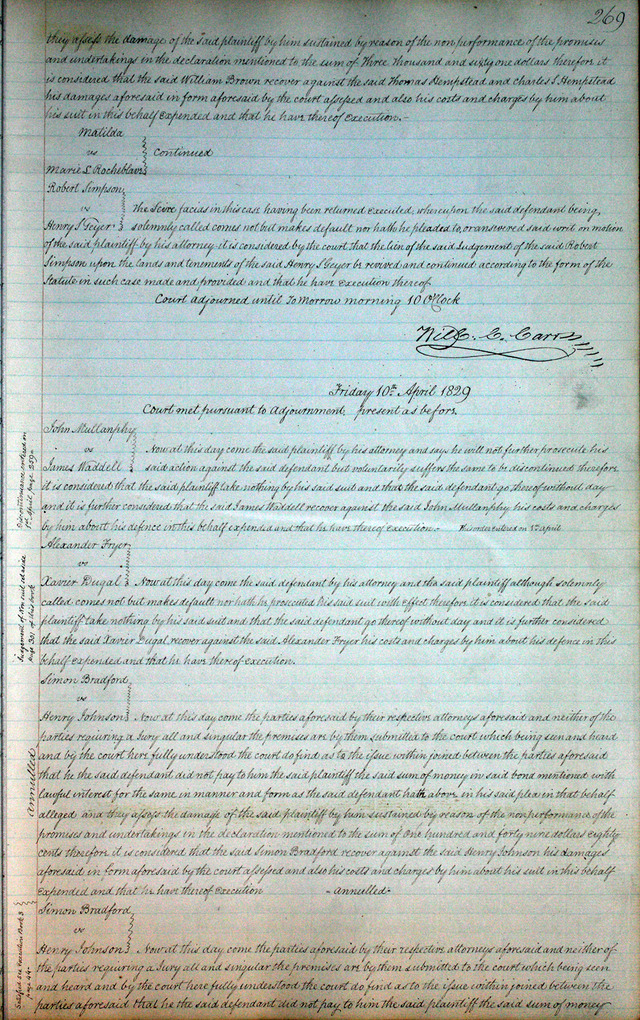 269
they assess the damage of the said plaintiff by him sustained by reason of the nonperformance of the promises
and undertakings in the declaration mentioned to the sum of Three thousand and sixty one dollars therefore it
is considered that the said William Brown recover against the said Thomas Hempstead and Charles S Hempstead
his damages aforesaid in form aforesaid by the court assessed and also his costs and charges by him about
his suit in this behalf expended and that he have thereof Execution.-
Matilda
vs Continued
Marie L Rocheblave
Robert Simpson
vs The Scire facias in this case having been returned executed, whereupon the said defendant being,
Henry S Geyer solemnly called comes not but makes default nor hath he pleaded to, or answered said writ on motion
of the said plaintiff by his attorney it is considered by the court that the lien of the said Judgement of the said Robert
Simpson upon the lands and tenements of the said Henry S Geyer be revived and continued according to the form of the
Statute in such case made and provided and that he have execution thereof
Court adjourned until To Morrow morning 10 O'Clock
Will. C. Carr
Friday 10th April 1829
Court met pursuant to Adjournment. present as before.
John Mullanphy
vs Now at this day come the said plaintiff by his attorney and says he will not further prosecute his
James Waddell said action against the said defendant but voluntarily suffers the same to be discontinued therefore
it is considered that the said plaintiff take nothing by his said suit and that the said defendant go thereof without day
and it is further considered that the said James Waddell recover against the said John Mullanphy his costs and charges
by him about his defence in this behalf expended and that he have thereof execution. entered on 1st april
Discontinuance entered on
1st April, page 259
Alexander Fryer
vs
Xavier Dugal Now at this day come the said defendant by his attorney and the said plaintiff although solemnly
called comes not but makes default nor hath he prosecuted his said suit with effect therefore it is considered that the said
plaintiff take nothing by his said suit and that the said defendant go thereof without day and it is further considered
that the said Xavier Dugal recover against the said Alexander Fryer his costs and charges by him about his defence in this
behalf expended and that he have thereof execution.
Judgement of Non suit set aside
page 301 of this book
Simon Bradford
vs
Henry Johnson Now at this day come the parties aforesaid by their respective attorneys aforesaid and neither of the
parties requiring a Jury all and singular the premises are by them submitted to the court which being seen and heard
and by the court here fully understood the court do find as to the issue within joined between the parties aforesaid
that he the said defendant did not pay to him the said plaintiff the said sum of money in said bond mentioned with
lawful interest for the same in manner and form as the said defendant hath above in his said plea in that behalf
alleged and they assess the damage of the said plaintiff by him sustained by reason of the nonperformance of the
promises and undertakings in the declaration mentioned to the sum of one hundred and forty nine dollars eighty
cents therefore it is considered that the said Simon Bradford recover against the said Henry Johnson his damages
aforesaid in form aforesaid by the court assessed and also his costs and charges by him about his suit in this behalf
Expended and that he have thereof execution - Annulled-
Annulled
Simon Bradford
vs
Henry Johnson Now at this day come the parties aforesaid by their respective attorneys aforesaid and neither of
the parties requiring a Jury all and singular the premises are by them submitted to the court which being seen
and heard and by the court here fully understood the court do find as to the issue within joined between the
parties aforesaid that he the said defendant did not pay to him the said plaintiff the said sum of money
Satisfied see Execution Book 3
page 44